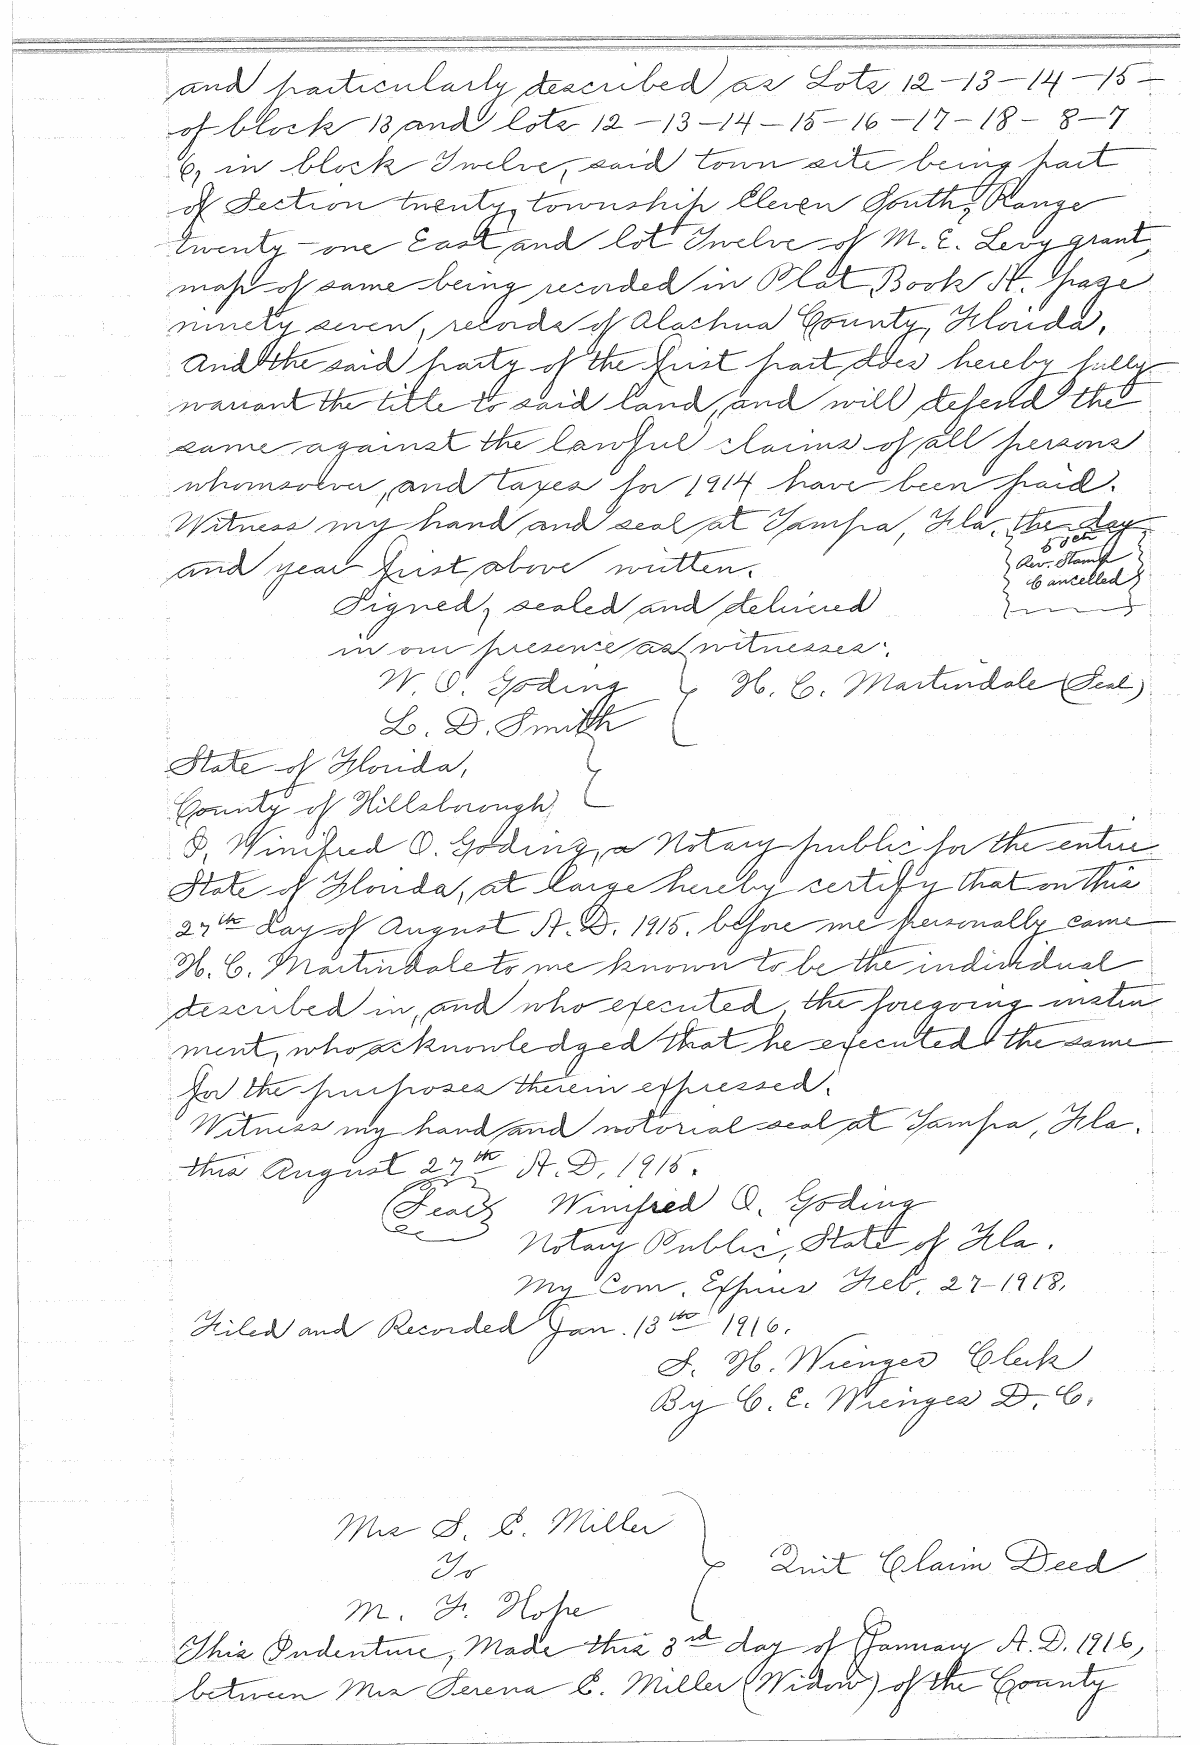 and particularly described as Lots 12-13-14-15-
of block 13, and lots 12-13-14-15-16-17-18-8-7
6, in block Twelve, said town site being part
of Section twenty, township Eleven South, Range
twenty-one East, and lot Twelve of M. E. Levy grant,
map of same being recorded in Plat Book A. page
ninety seven, records of Alachua County, Florida.
And the said party of the first part does hereby fully
warrant the title to said land, and will defend the
same against the lawful claims of all persons
whomsoever, and taxes for 1914 have been paid.
Witness my hand and seal at Tampa, Fla. the day
and year first above written.
Rev. Stamp
Cancelled
Signed, sealed and delivered
in our presence as witnesses:
W. O. Goding
H. C. Martindale (Seal)
L. D. Smith
State of Florida,
County of Hillsborough,
I, Winifred O. Goding, a Notary public for the entire
State of Florida, at large hereby certify that on this
27th day of August A. D. 1915. before me personally came
H. C. Martindale to me known to be the individual
described in, and who executed, the foregoing instru
ment, who acknowledged that he executed the same
for the purposes therein expressed.
Witness my hand and notorial seal at Tampa, Fla.
this August 27th A. D. 1915.
(Seal) Winifred O. Goding
Notary Public, State of Fla.
My Com. Expires Feb. 27-1918.
Filed and Recorded Jan. 13th 1916.
S. H. Wienges Clerk
By C. E. Wienges D. C.
Mrs S. E. Miller
To
Quit Claim Deed
M. F. Hope
This Indenture, Made this 3rd day of January A. D. 1916,
between Mrs Serena E. Miller (Widow) of the County